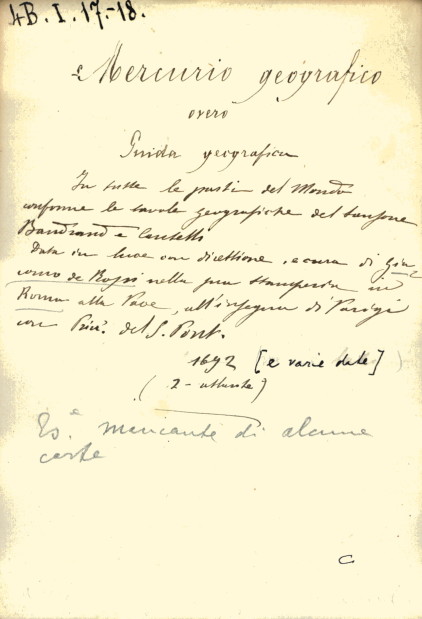 4B. I. 17.-18.
Mercurio geografico
overo
Guida geografica
In tutte le parti del Mondo
conforme le tavole geografiche del Sansone
Baudrand e Cantelli
Data in luce con direttione, e cura di Gia
como de Rossi nella sua stamperia in
Roma alla Pace, all'insegna di Parigi
con Priv. del S. Pont.
1692 [e varie date]
(2-atlante)
Es.e mancante di alcune
carte
C